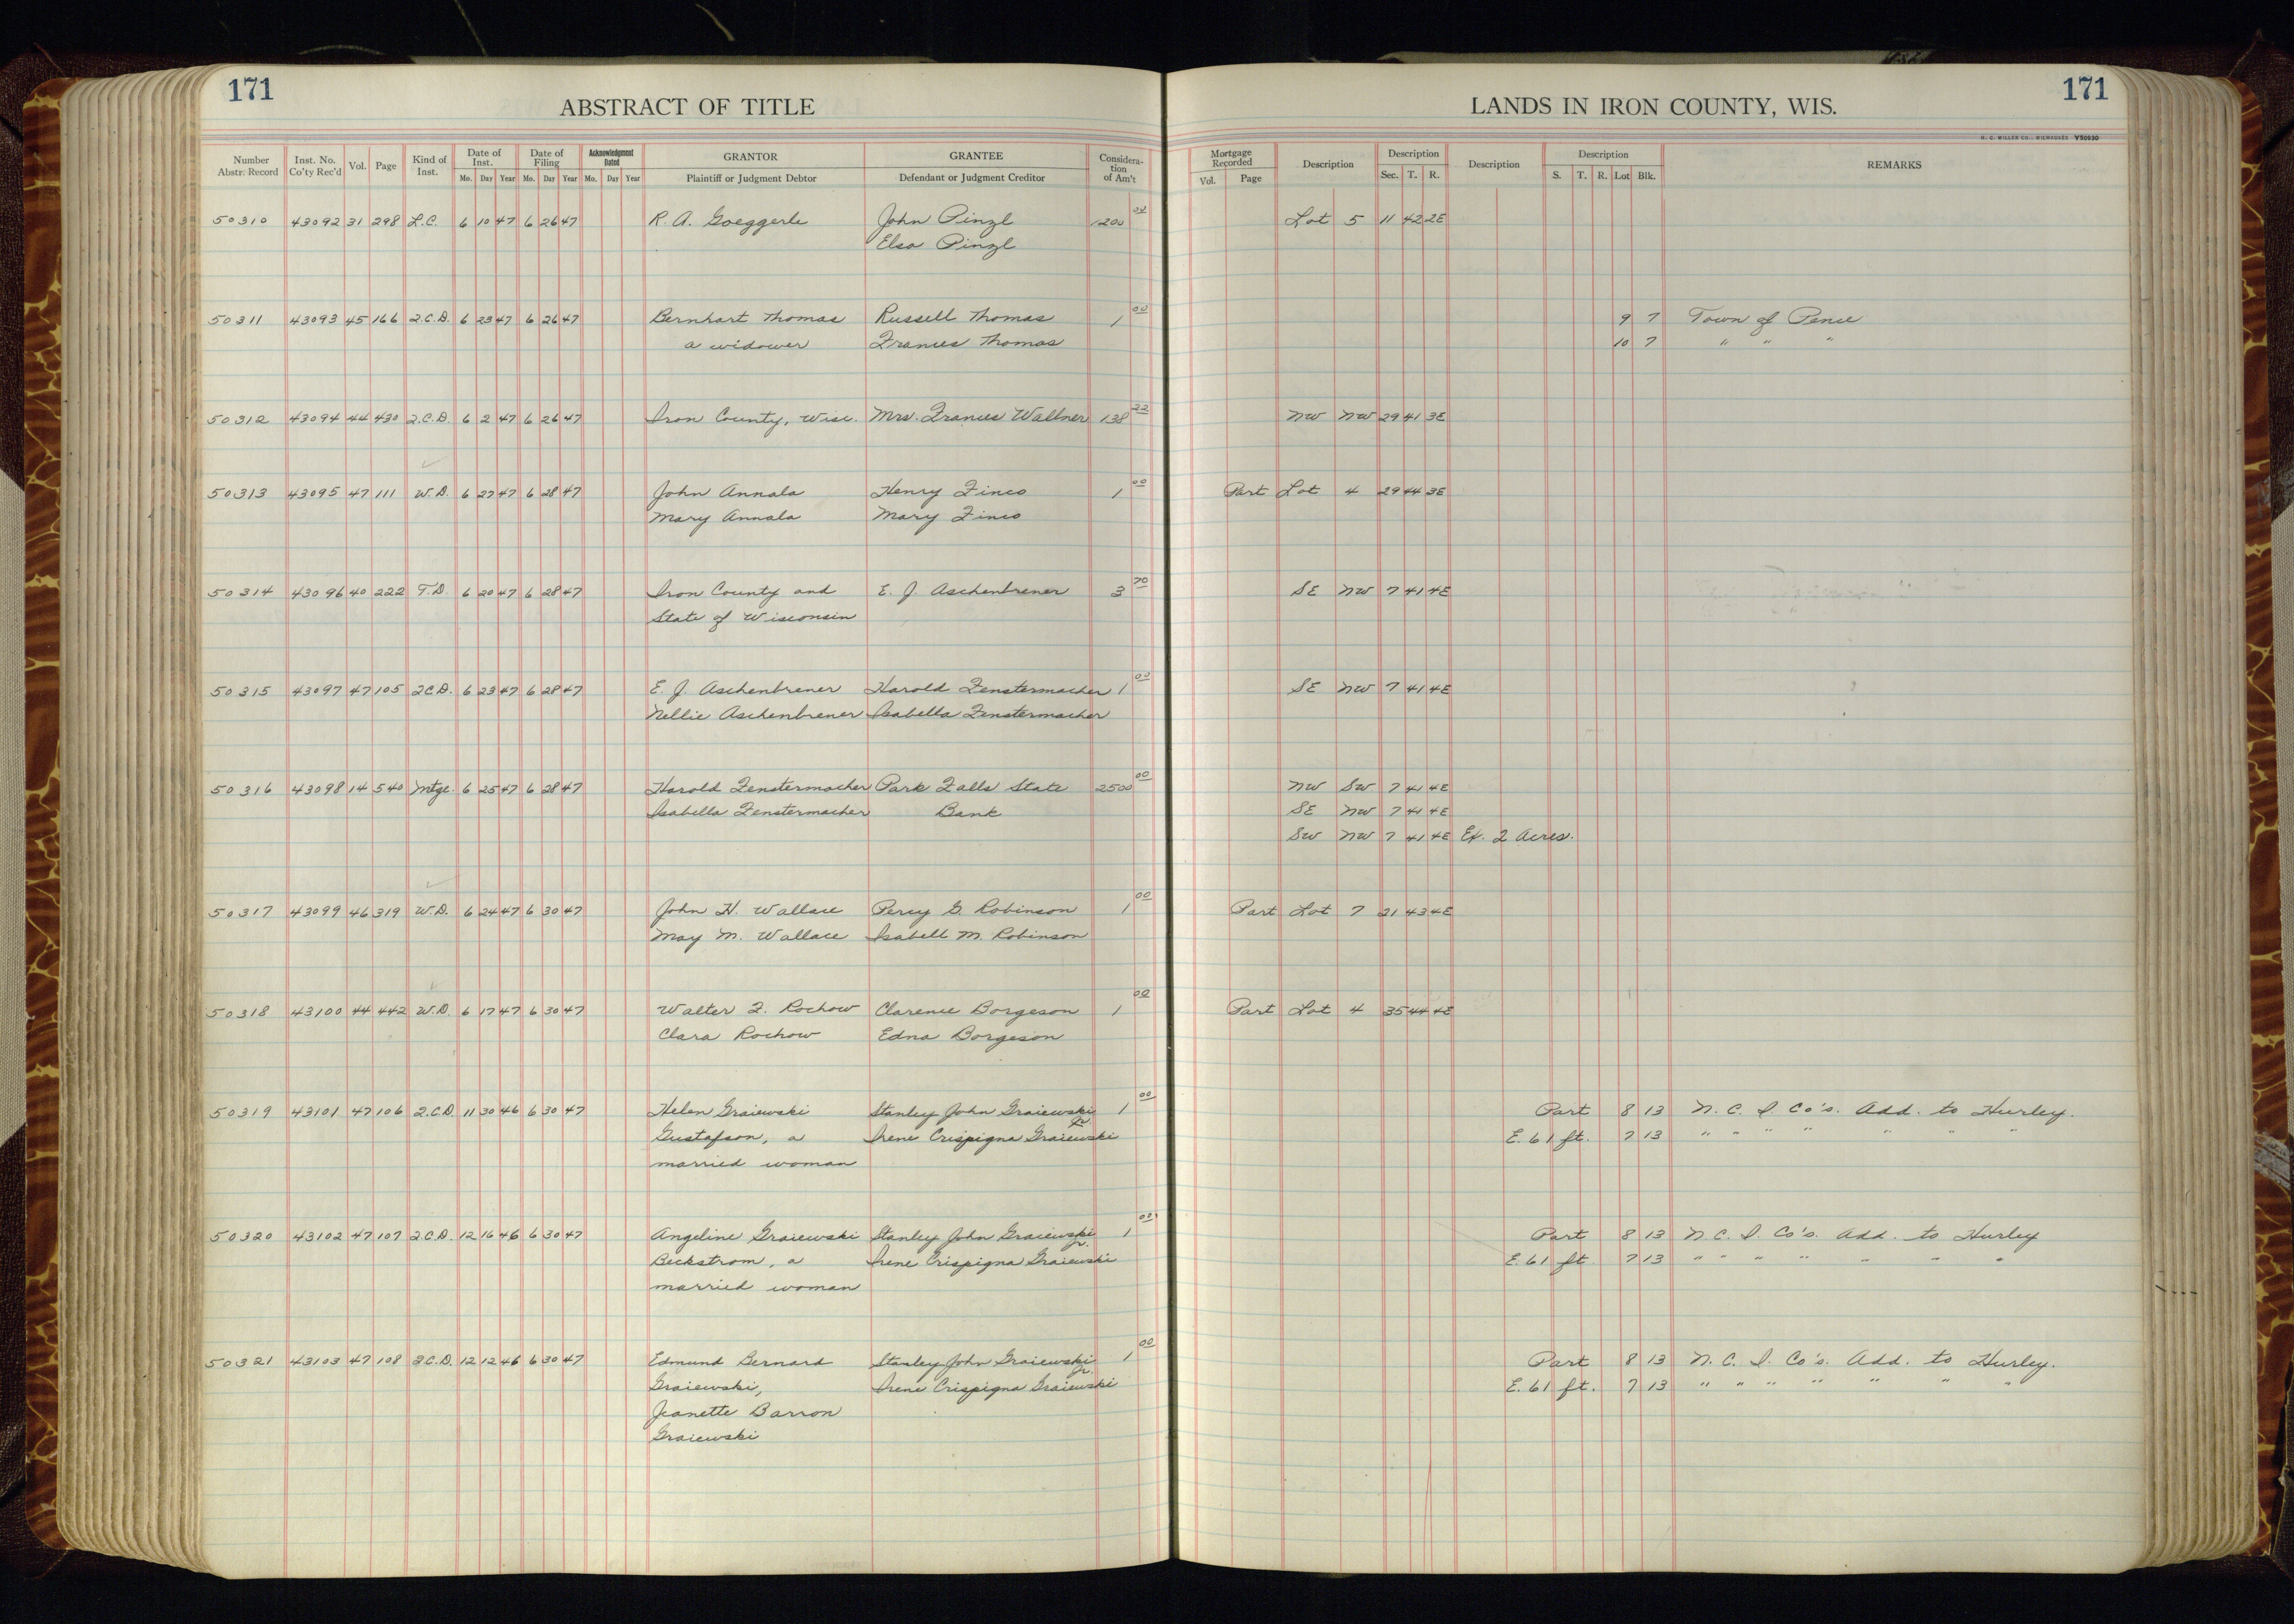 171
ABSTRACT OF TITLE
LANDS IN IRON COUNTY, WIS.
171
H. C. MILLER CO., MILWAUKEE Y50930
Number Abstr. Record Inst. No. Co'ty Rec'd Vol. Page Kind of Inst. Date of Inst. Mo. Day Year Date of Filing Mo. Day Year Acknowledgment Dated Mo. Day Year GRANTOR Plaintiff or Judgment Debtor GRANTEE Defendant or Judgment Creditor Consideration of Am't Mortgage Recorded Vol. Page Description Description Sec. T. R. Description Description S. T. R. Lot Blk. REMARKS
50310 43092 31 298 L.C. 6 10 47 6 26 47 R. A. Goeggerle John Pinzl 1200 00 Lot 5 11 42 2E
Elsa Pinzl
50311 43093 45 166 Q.C.D. 6 23 47 6 26 47 Bernhart Thomas Russell Thomas 1 00 9 7 Town of Pence
a widower Frances Thomas 10 7 " " "
50312 43094 44 430 Q.C.D. 6 2 47 6 26 47 Iron County, Wisc. Mrs. Frances Wallner 138 22 NW NW 29 41 3E
50313 43095 47 111 W.D. 6 27 47 6 28 47 John Annala Henry Finco 1 00 Part Lot 4 29 44 3E
Mary Annala Mary Finco
50314 43096 40 222 T.D. 6 20 47 6 28 47 Iron County and E. J. Aschenbrener 3 70 SE NW 7 41 4E
State of Wisconsin
50315 43097 47 105 Q.C.D. 6 23 47 6 28 47 E. J. Aschenbrener Harold Fenstermacher 1 00 SE NW 7 41 4E
Nellie Aschenbrener Isabella Fenstermacher
50316 43098 14 540 Mtge. 6 25 47 6 28 47 Harold Fenstermacher Park Falls State 2500 00 NW SW 7 41 4E
Isabella Fenstermacher Bank SE NW 7 41 4E
SW NW 7 41 4E Ex. 2 Acres.
50317 43099 46 319 W.D. 6 24 47 6 30 47 John H. Wallace Percy G. Robinson 1 00 Part Lot 7 21 43 4E
May M. Wallace Isabell M. Robinson
50318 43100 44 442 W.D. 6 17 47 6 30 47 Walter F. Rochow Clarence Borgeson 1 00 Part Lot 4 35 44 4E
Clara Rochow Edna Borgeson
50319 43101 47 106 Q.C.D. 11 30 46 6 30 47 Helen Graiewski Stanley John Graiewski Jr. 1 00 Part 8 13 N. C. I. Co's. Add. to Hurley.
Gustafson, a Irene Crispigna Graiewski E. 61 ft. 7 13 " " " " " " "
married woman
50320 43102 47 107 Q.C.D. 12 16 46 6 30 47 Angeline Graiewski Stanley John Graiewski Jr. 1 00 Part 8 13 N. C. I. Co's. Add. to Hurley
Beckstrom, a Irene Crispigna Graiewski E. 61 ft 7 13 " " " " " " "
married woman
50321 43103 47 108 Q.C.D. 12 12 46 6 30 47 Edmund Bernard Stanley John Graiewski Jr. 1 00 Part 8 13 N. C. I. Co's. Add. to Hurley.
Graiewski, Irene Crispigna Graiewski E. 61 ft. 7 13 " " " " " " "
Jeanette Barron
Graiewski